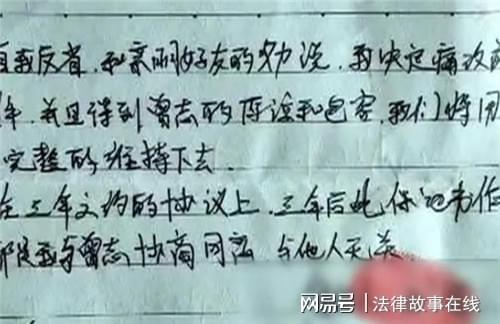 自我反省,和亲朋好友的劝说,我决定痛改前
年,并且得到曾志的原谅和包容,我们将用
完整的维持下去.
在三年之约的协议上,三年后此保证书作
都是我与曾志协商同意 与他人无关
网易号 | 法律故事在线